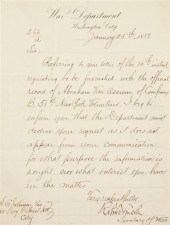 War Department
Washington City
January 25th, 1882
Sir:
Referring to your letter of the 18th instant
requesting to be furnished with the official
record of Abraham Van
B. 51st New York Volunteers I beg to
inform you that the Department must
decline your request as it does not
appear from your communication
for what purpose the information is
sought nor what interest you have
in the matter.
Very respectfully
Robert Lincoln
Secretary of War
City